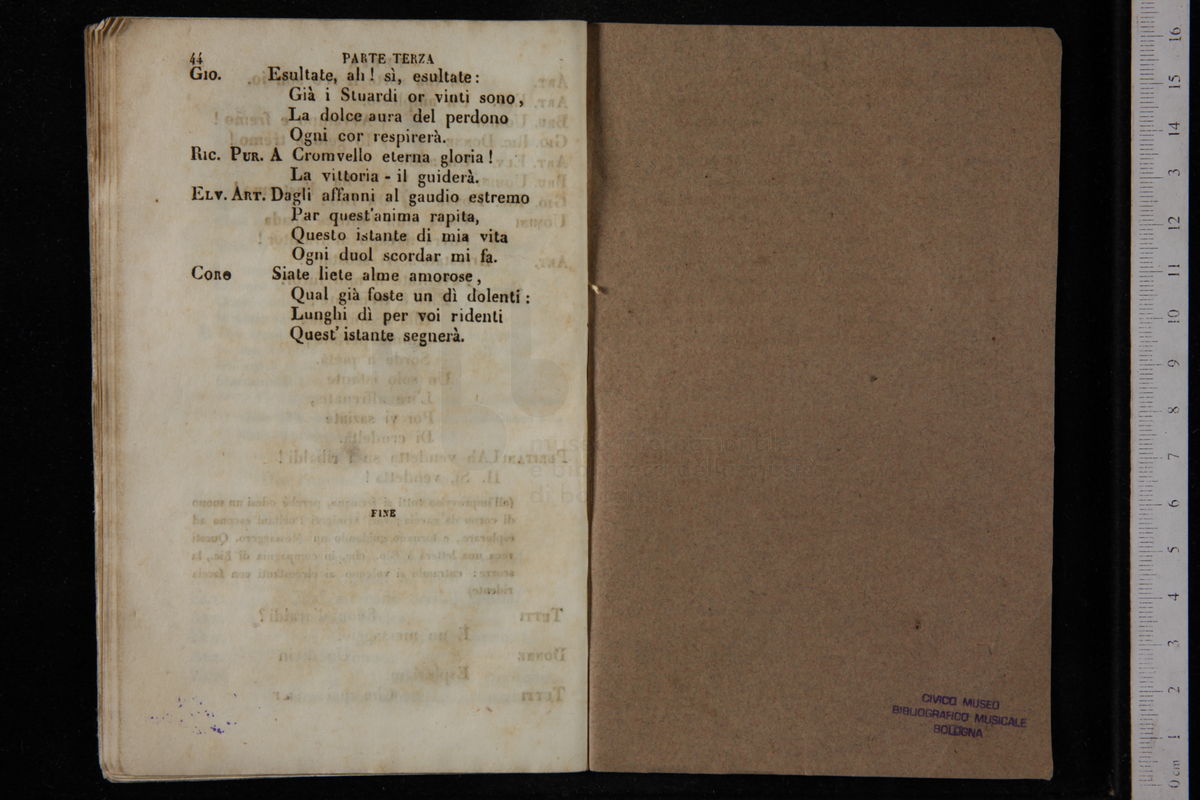 44 PARTE TERZA
GIO. Esultate, ah! sì, esultate:
Già i Stuardi or vinti sono,
La dolce aura del perdono
Ogni cor respirerà.
RIC. PUR. A Cromvello eterna gloria!
La vittoria - il guiderà.
ELV. ART. Dagli affanni al gaudio estremo
Par quest'anima rapita,
Questo istante di mia vita
Ogni duol scordar mi fa.
CORO Siate liete alme amorose,
Qual già foste un dì dolenti:
Lunghi dì per voi ridenti
Quest' istante segnerà.
FINE
CIVICO MUSEO
BIBLIOGRAFICO MUSICALE
BOLOGNA
16
15
14
13
12
11
10
9
8
7
6
5
4
3
2
1
0 cm